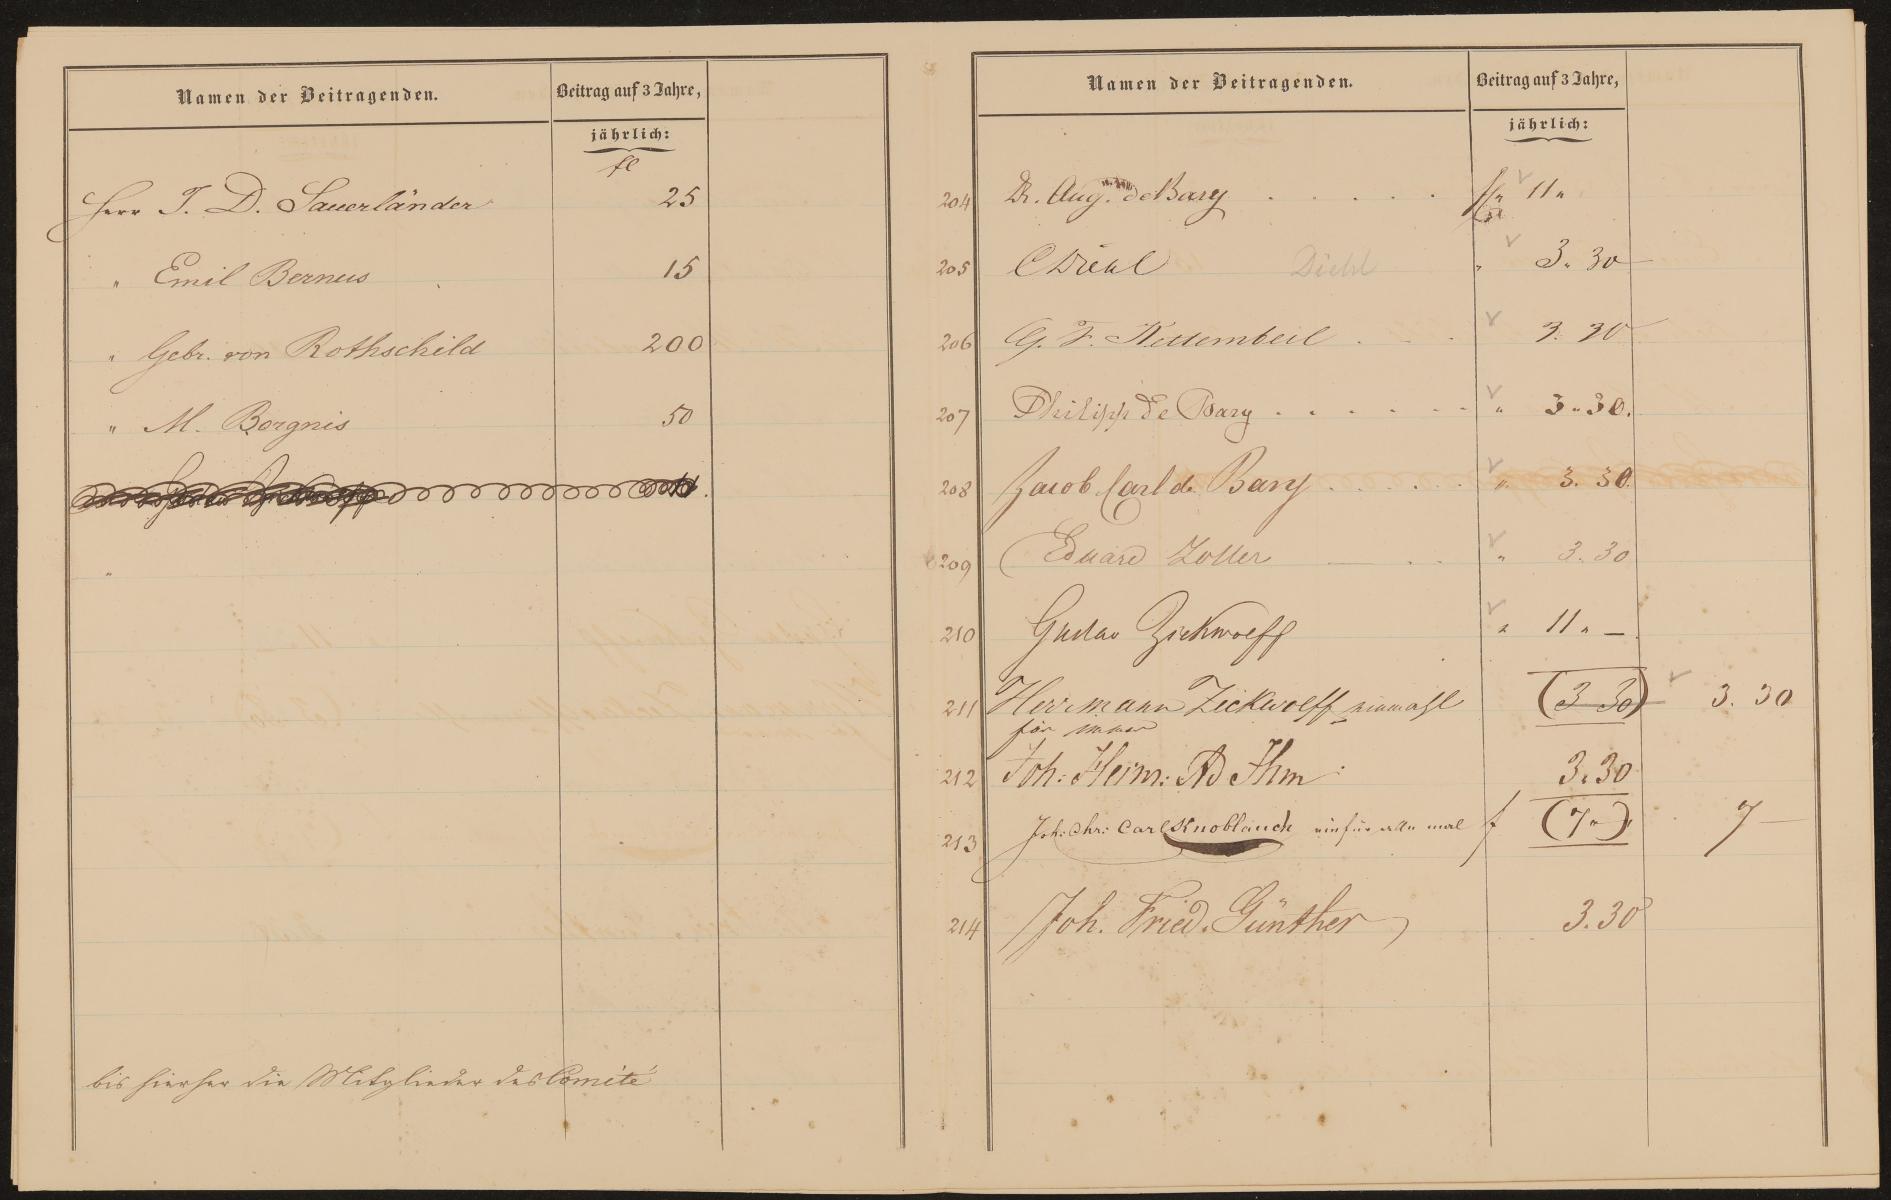 Namen der Beitragenden.
Beitrag auf 3 Jahre,
jährlich:
fl
Herr J. D. Sauerländer 25
" Emil Bernus 15
" Gebr. von Rothschild 200
" M. Borgnis 50
"
bis hierher die Mitglieder des Comité
Namen der Beitragenden.
Beitrag auf 3 Jahre,
jährlich:
204 Dr. Aug. de Bary . . . . . 11 "
205 C Diehl Diehl " 3. 30
206 G. F. Kettembeil . . . 3. 30
207 Philipp de Bary . . . . . . " 3 " 30.
208 Jacob Carl de Bary . . . . . " 3. 30.
209 Eduard Zoller — . . " 3. 30
210 Gustav Zickwolff " 11 " —
211 Herrmann Zickwolff einmahl (3 30) 3. 30
für immer
212 Joh: Heinr: Ad Ihm : 3. 30
213 Joh: Chr: Carl Knoblauch ein für alle mal f (7 " —) 7 —
214 Joh. Fried. Günther 3. 30